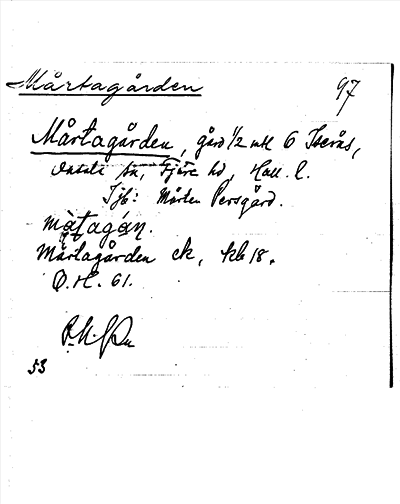 Mårtagården
97
Mårtagården, gård 1/2 mtl 6 Iserås,
Onsala sn, Fjäre hd, Hall. l.
Tjb: Mårten Persgård.
màtagán.
Mårtagården ek, kb 18.
O.H. 61.
53